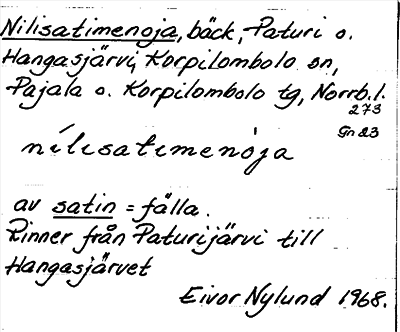 Nilisatimenoja, bäck, Paturi o.
Hangasjärvi, Korpilombolo sn,
Pajala o. Korpilombolo tg, Norrb.l.
273
Gn 23
nílisatimenòja
av satin = fälla.
Rinner från Paturijärvi till
Hangasjärvet
Eivor Nylund 1968.